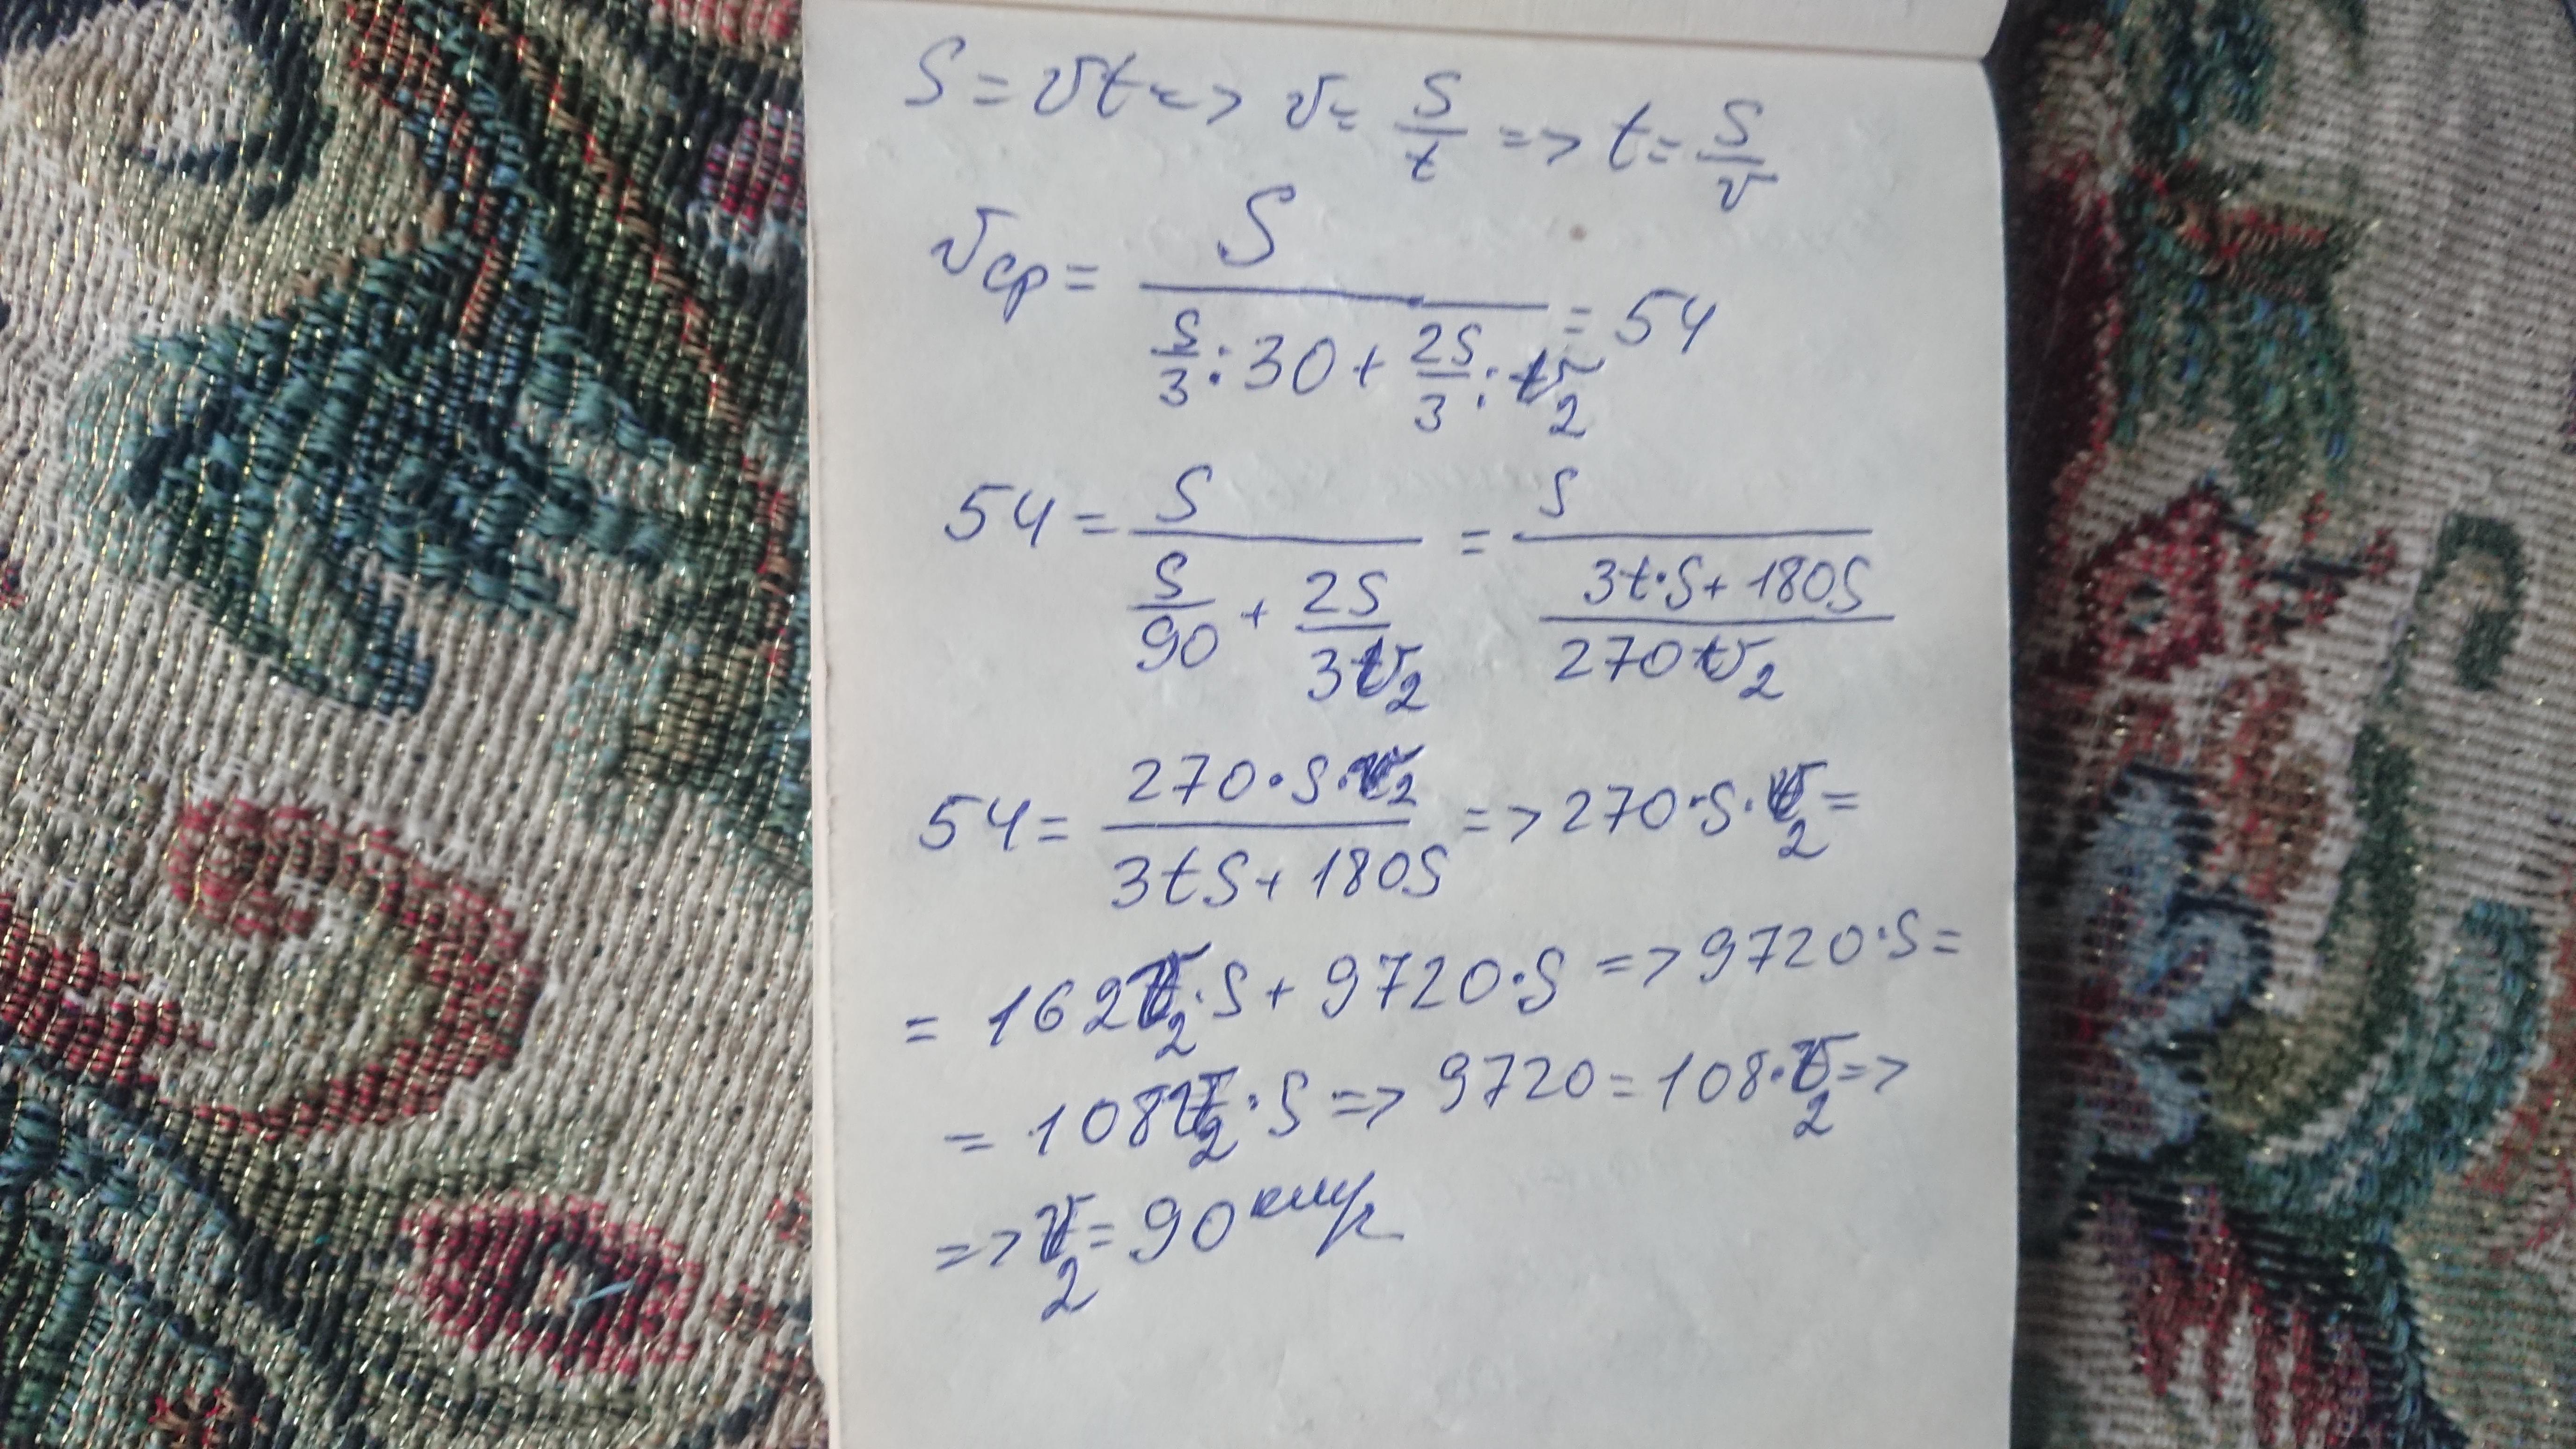 S = vt => v = S/t => t = S/v
vср = S/(S/3 : 30 + 2S/3 : v2) = 54
54 = S/(S/90 + 2S/3v2) = S/((3t·S + 180S)/270v2)
54 = 270·S·v2/(3tS + 180S) => 270·S·v2 =
= 162v2·S + 9720·S => 9720·S =
= 108v2·S => 9720 = 108·v2 =>
=> v2 = 90 км/ч